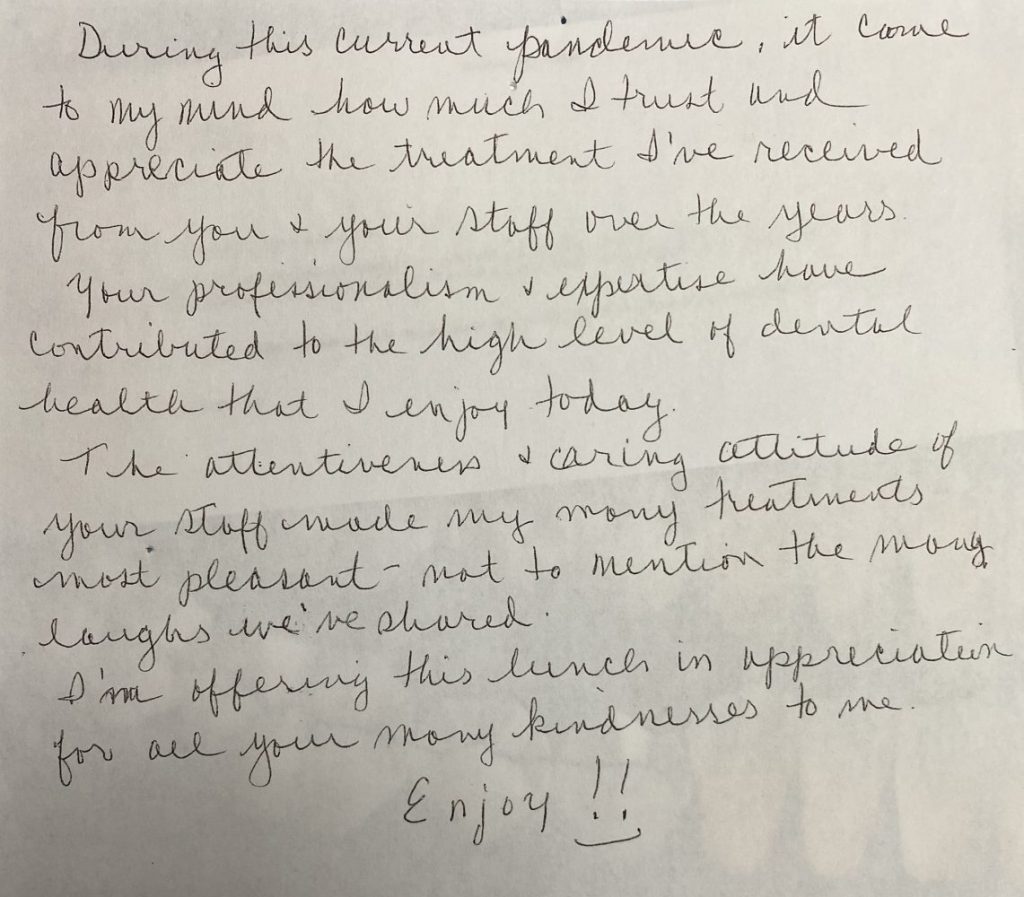 During this current pandemic, it came
to my mind how much I trust and
appreciate the treatment I've received
from you & your staff over the years.
Your professionalism & expertise have
contributed to the high level of dental
health that I enjoy today.
The attentiveness & caring attitude of
your staff made my many treatments
most pleasant - not to mention the many
laughs we've shared.
I'm offering this lunch in appreciation
for all your many kindnesses to me.
Enjoy !!